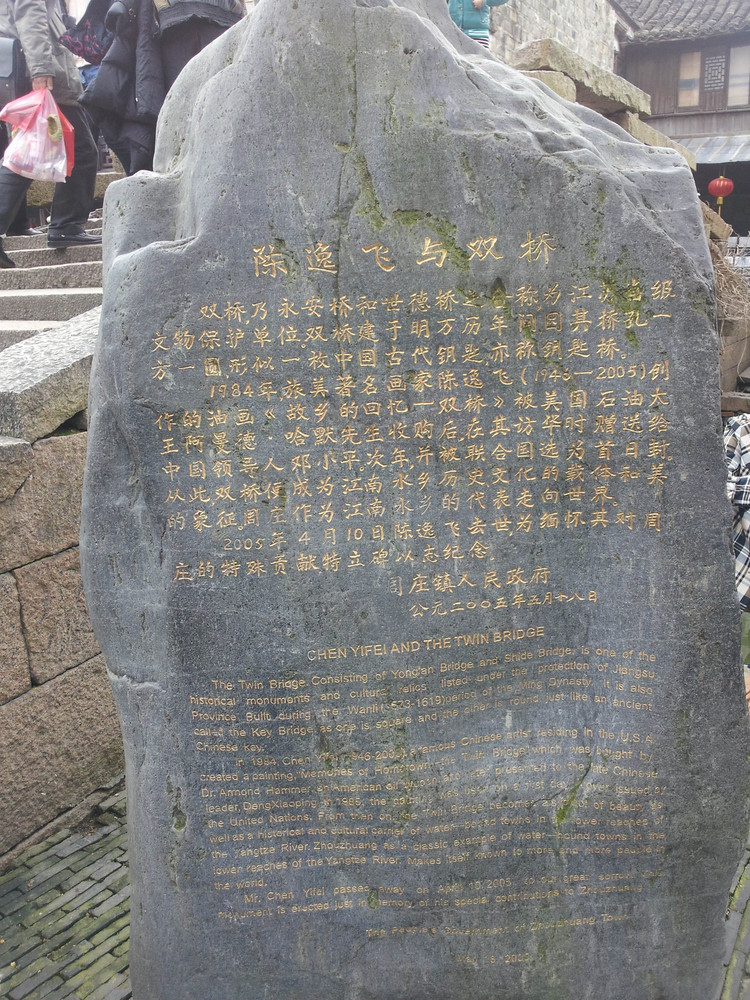 陈逸飞与双桥
双桥,乃永安桥和世德桥之合称,为江苏省级
文物保护单位,双桥建于明万历年间,因其桥孔一
方一圆,形似一枚中国古代钥匙,亦称钥匙桥。
1984年,旅美著名画家陈逸飞(1946—2005)创
作的油画《故乡的回忆—双桥》被美国石油大
王阿曼德·哈默先生收购后,在访华时赠送给
中国领导人邓小平。次年,被联合国选为首日封。
从此,双桥便成为江南水乡历史文化的载体和美
的象征。周庄作为江南水乡的代表走向世界。
2005年4月10日陈逸飞去世,为缅怀其对周
庄的特殊贡献特立碑以志纪念。
庄镇人民政府
公元二00五年五月十八日
CHEN YIFEI AND THE TWIN BRIDGE
The Twin Bridge. Consisting of Yong'an Bridge and Shide Bridge, is one of the
historical monuments and cultural relics listed under the protection of Jiangsu
Province. Built during the Wanli( -1619)period of the Ming Dynasty, it is also
called the Key Bridge, as one is square and the other is round just like an ancient
Chinese key.
In 1984, Chen Yifei(1946-2005),a famous Chinese artist residing in the U.S.A
created a painting, Memories of Hometown-the Twin Bridge, which was bought by
Dr. Armond Hammer, an American oil and later presented to the late Chinese
leader, DengXiaoping. In 1985, the painting was used on a first day cover issued by
the United Nations. From then on, the Twin Bridge becomes a of beauty as
well as a historical and cultural carrier of water-bound towns in the lower reaches of
the Yangtze River. Zhouzhuang as a classic example of water-bound towns in the
lower reaches of the Yangtze River. Makes itself known to more and more people of
the world.
Mr. Chen Yifei passed away on April 10, 2005, to our great sorrow.
Monument is erected just in memory of his special contributions to Zhouzhuang
The People's Government of Zhouzhuang Town
May 18, 2005